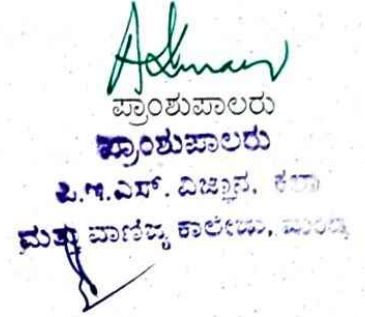 ಪ್ರಾಂಶುಪಾಲರು
ಪ್ರಾಂಶುಪಾಲರು
ಪಿ.ಇ.ಎಸ್. ವಿಜ್ಞಾನ, ಕಲಾ
ಮತ್ತು ವಾಣಿಜ್ಯ ಕಾಲೇಜು, ಮಂಡ್ಯ